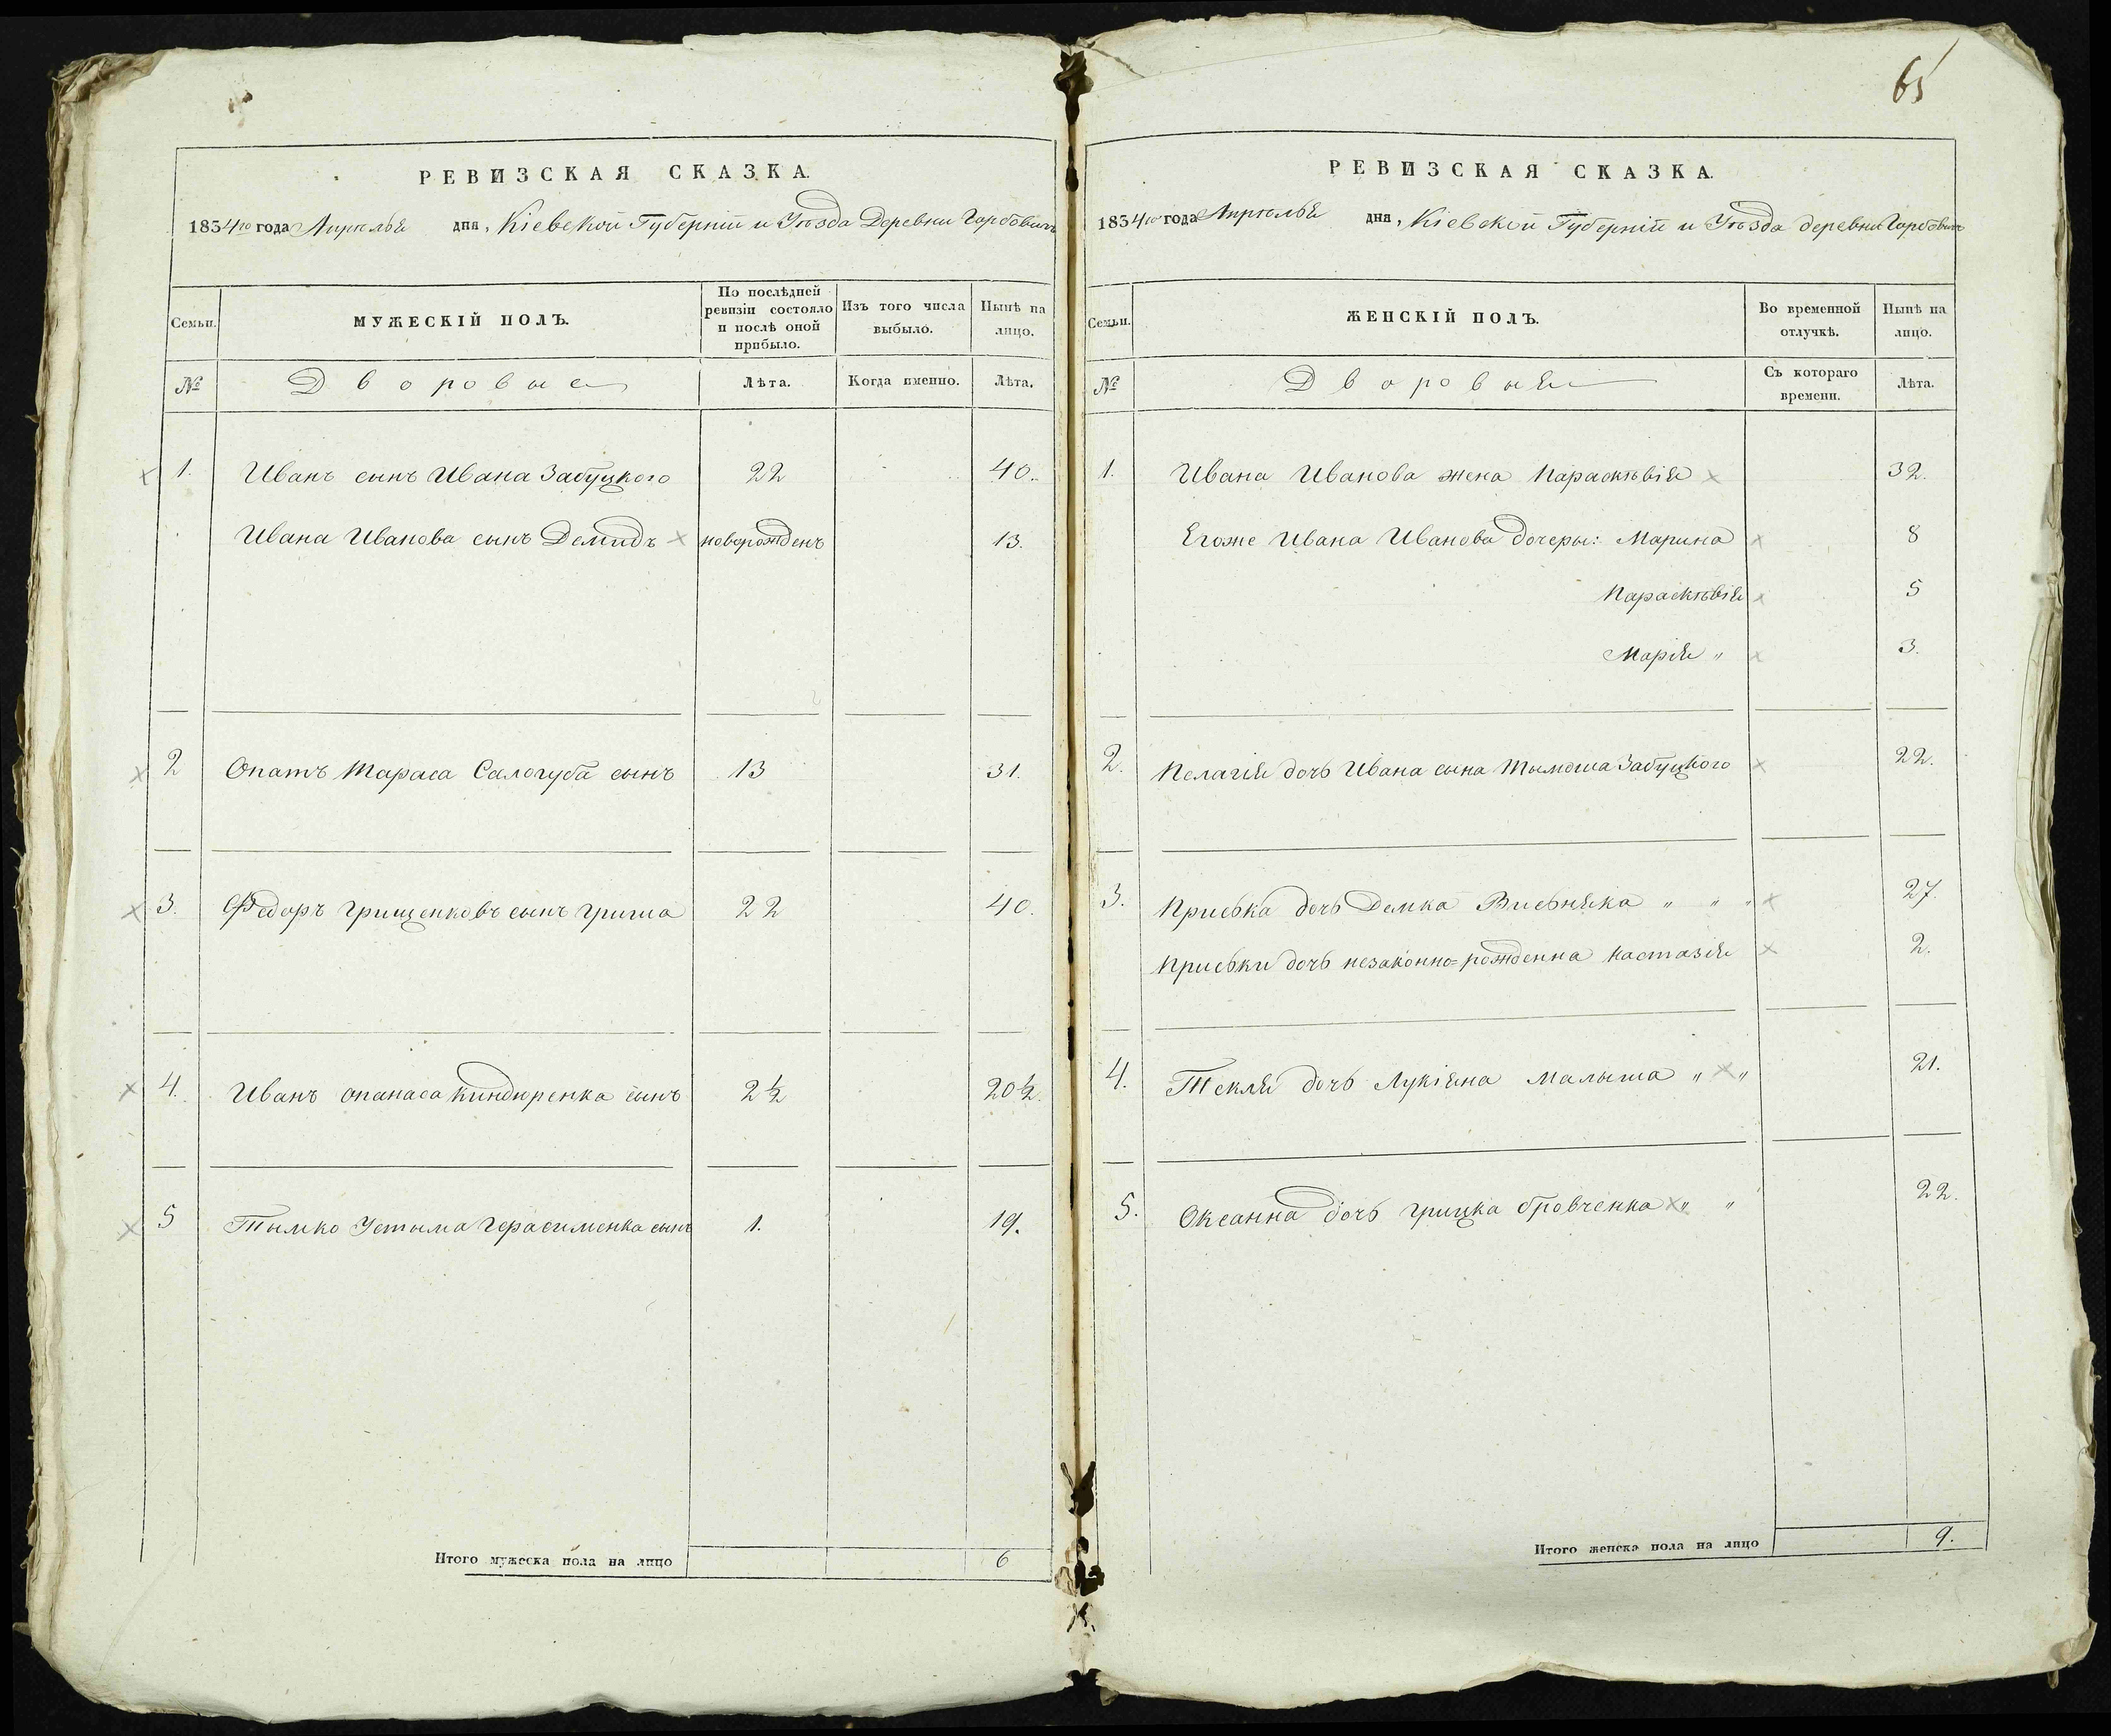 65
РЕВИЗСКАЯ СКАЗКА.
1834го года Апрѣля дня, Кіевской Губерніи и Уѣзда Деревни Горбовичъ
Семьи. МУЖЕСКІЙ ПОЛЪ. По послѣдней ревизіи состояло и послѣ оной прибыло. Изъ того числа выбыло. Нынѣ на лицо.
№ Дворовые Лѣта. Когда именно. Лѣта.
1. Иванъ сынъ Ивана Забуцкого 22 40.
Ивана Иванова сынъ Демидъ новорожденъ 13.
2 Опатъ Тараса Салогуба сынъ 13 31.
3. Федоръ Грищенковъ сынъ Гриша 22 40.
4. Иванъ Опанаса Киндюренка сынъ 2½ 20½.
5 Тымко Устыма Герасименка сынъ 1. 19.
Итого мужеска пола на лицо 6
РЕВИЗСКАЯ СКАЗКА.
1834го года Апрѣля дня, Кіевской Губерніи и Уѣзда деревни Горбовичъ
Семьи. ЖЕНСКІЙ ПОЛЪ. Во временной отлучкѣ. Нынѣ на лицо.
№ Дворовыя Съ котораго времени. Лѣта.
1. Ивана Иванова жена Параскѣвія 32.
Егоже Ивана Иванова дочеры: Марина 8
Параскѣвія 5
Марія " 3.
2. Пелагія дочь Ивана сына Тымоша Забуцкого 22.
3. Приська дочь Демка Висьняка " " " 27.
Приськи дочь незаконно=рожденна Настазія 2.
4. Текля дочь Лукіяна Малыша " " 21.
5. Оксанна дочь Грицка Бровченка " " 22.
Итого женска пола на лицо 9.